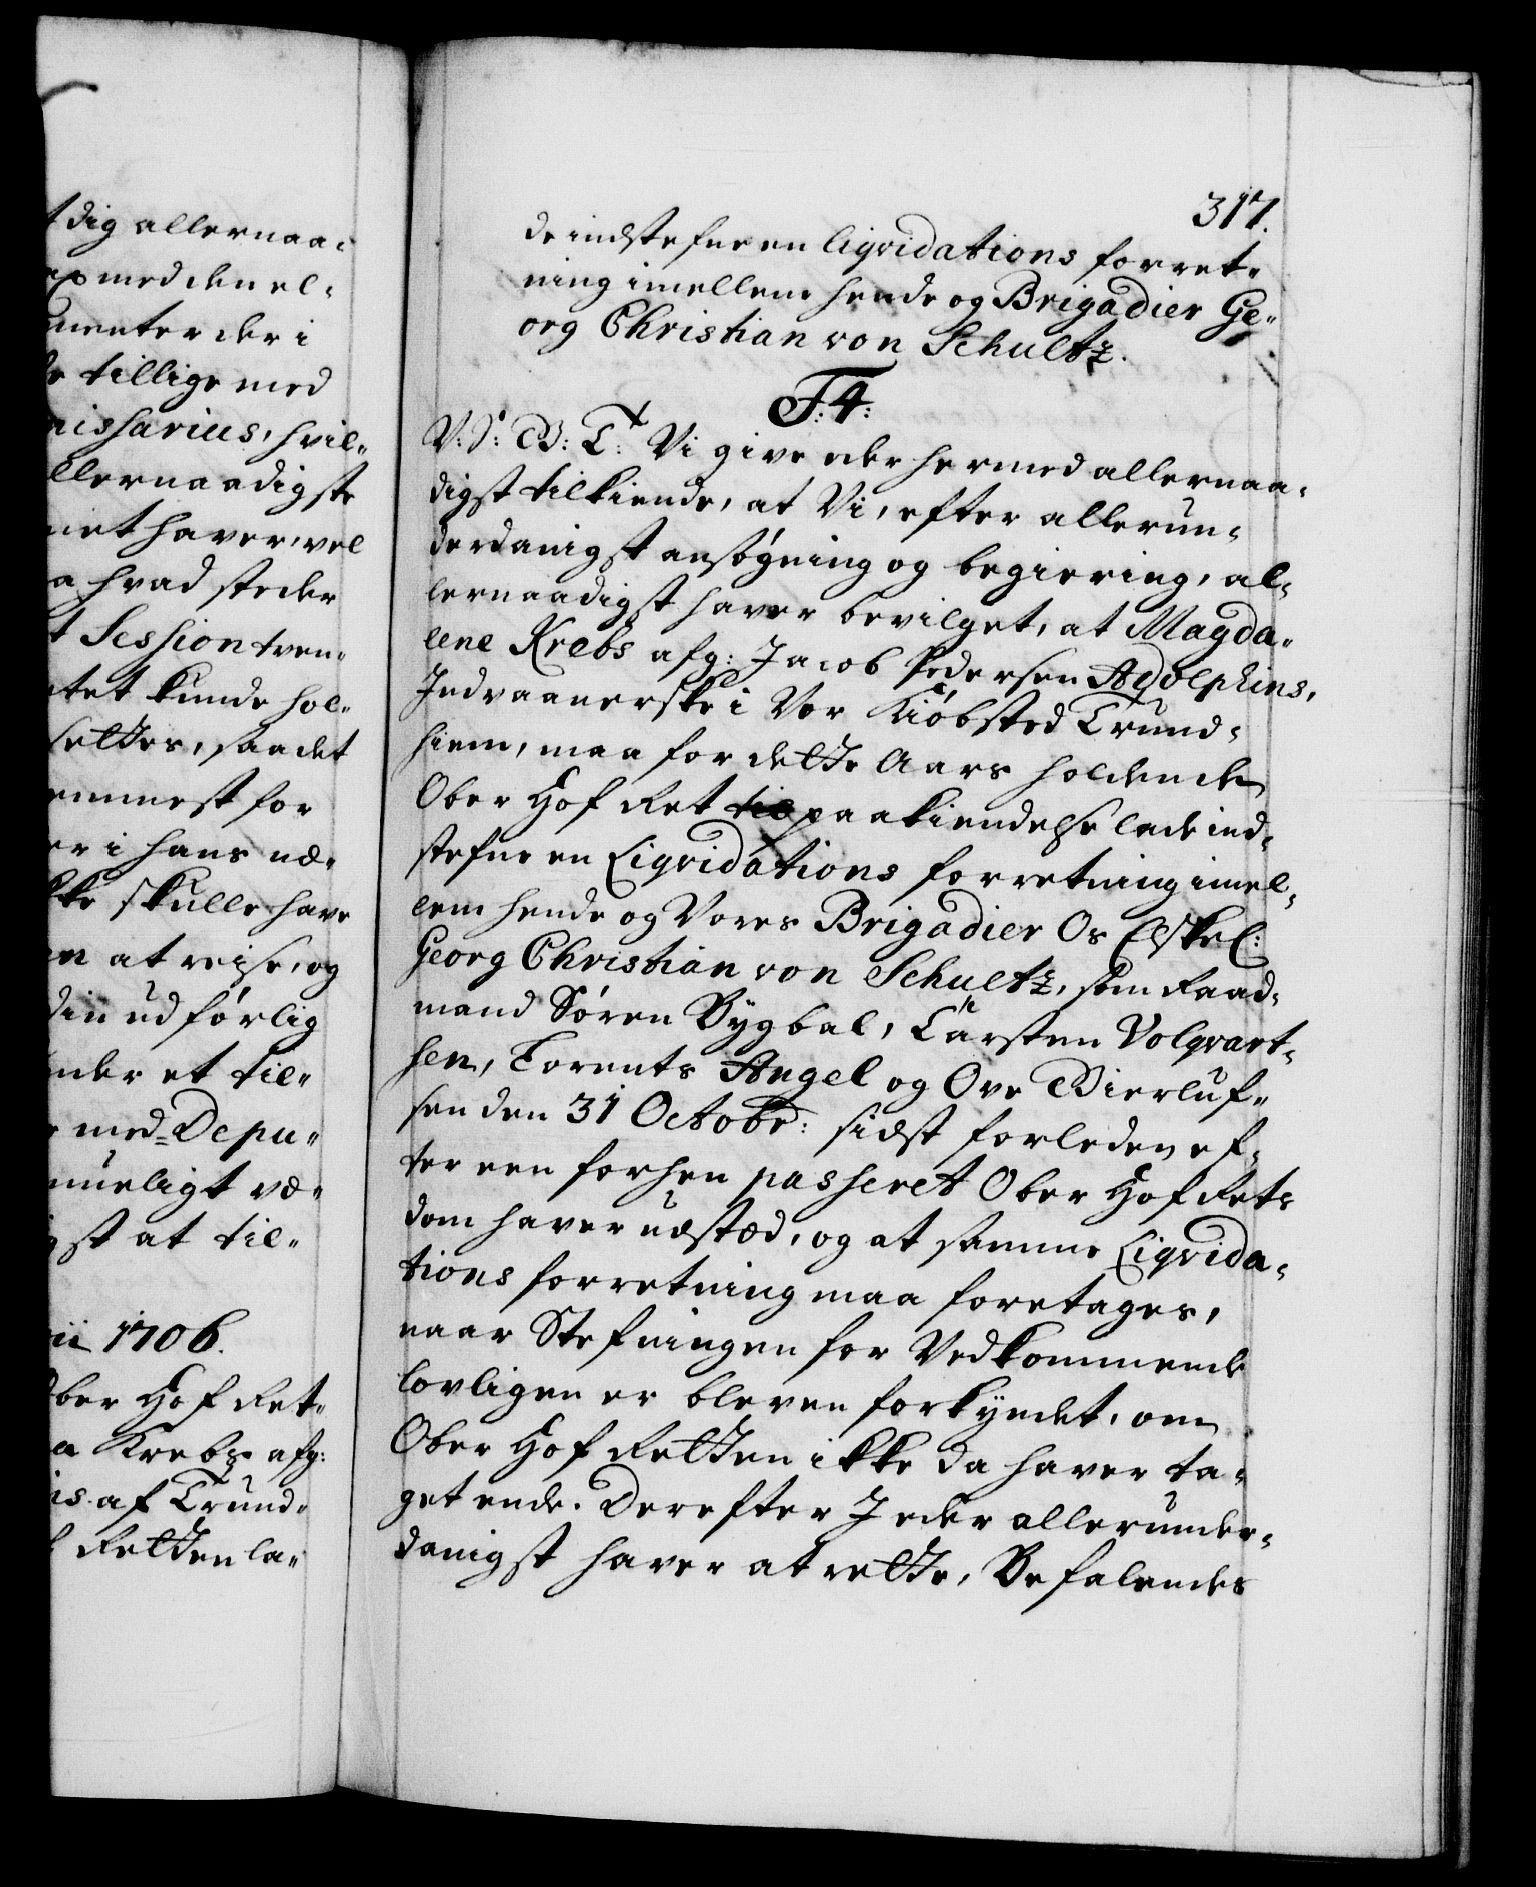 t dig allernaa-
med den el-
menter der i
de tillige med
missarius, hvil-
llernaadigste
net haver, vel
a hvad steder
t Session tven-
ntet kunde hol-
settes, saa det
emmest for
er i hans næ-
kke skulle have
en at reise, og
din udførlig
nder et til-
e med Depu-
mueligt væ-
igst at til-
ii 1706.
Ober Hof Ret-
a Krebs afg:
is af Trund-
f Retten la-
317.
de indstefne en liqvidations forret-
ning imellem hende og Brigadier Ge-
org Christian von Schultz.
F: 4:
V: S: G: T: Vi give eder hermed allernaa-
digst tilkiende, at Vi, efter allerun-
derdanigst ansøgning og begiering, al-
lernaadigst haver bevilget, at Magda-
lene Krebs afg: Jacob Pedersen Adolphins,
Indvaanerske i Vor Kiøbsted Trund-
hiem, maa for dette Aars holdende
Ober Hof Ret til paakiendelse lade ind-
stefne en Liqvidations forretning imel-
lem hende og Vores Brigadier Os Elskel:
Georg Christian von Schultz, som Raad-
mand Søren Bygbal, Carsten Volqvart-
sen, Lorents Angel og Ove Bierluf-
sen den 31 Octobr: sidst forleden ef-
ter een forhen passeret Ober Hof Rets
dom haver udstæd, og at samme Liqvida-
tions forretning maa foretages,
naar Stefningen for Vedkommende
lovligen er bleven forkyndet, om
Ober Hof Retten ikke da haver ta-
get ende. Derefter I eder allerunder-
danigst haver at rette, Befalendes